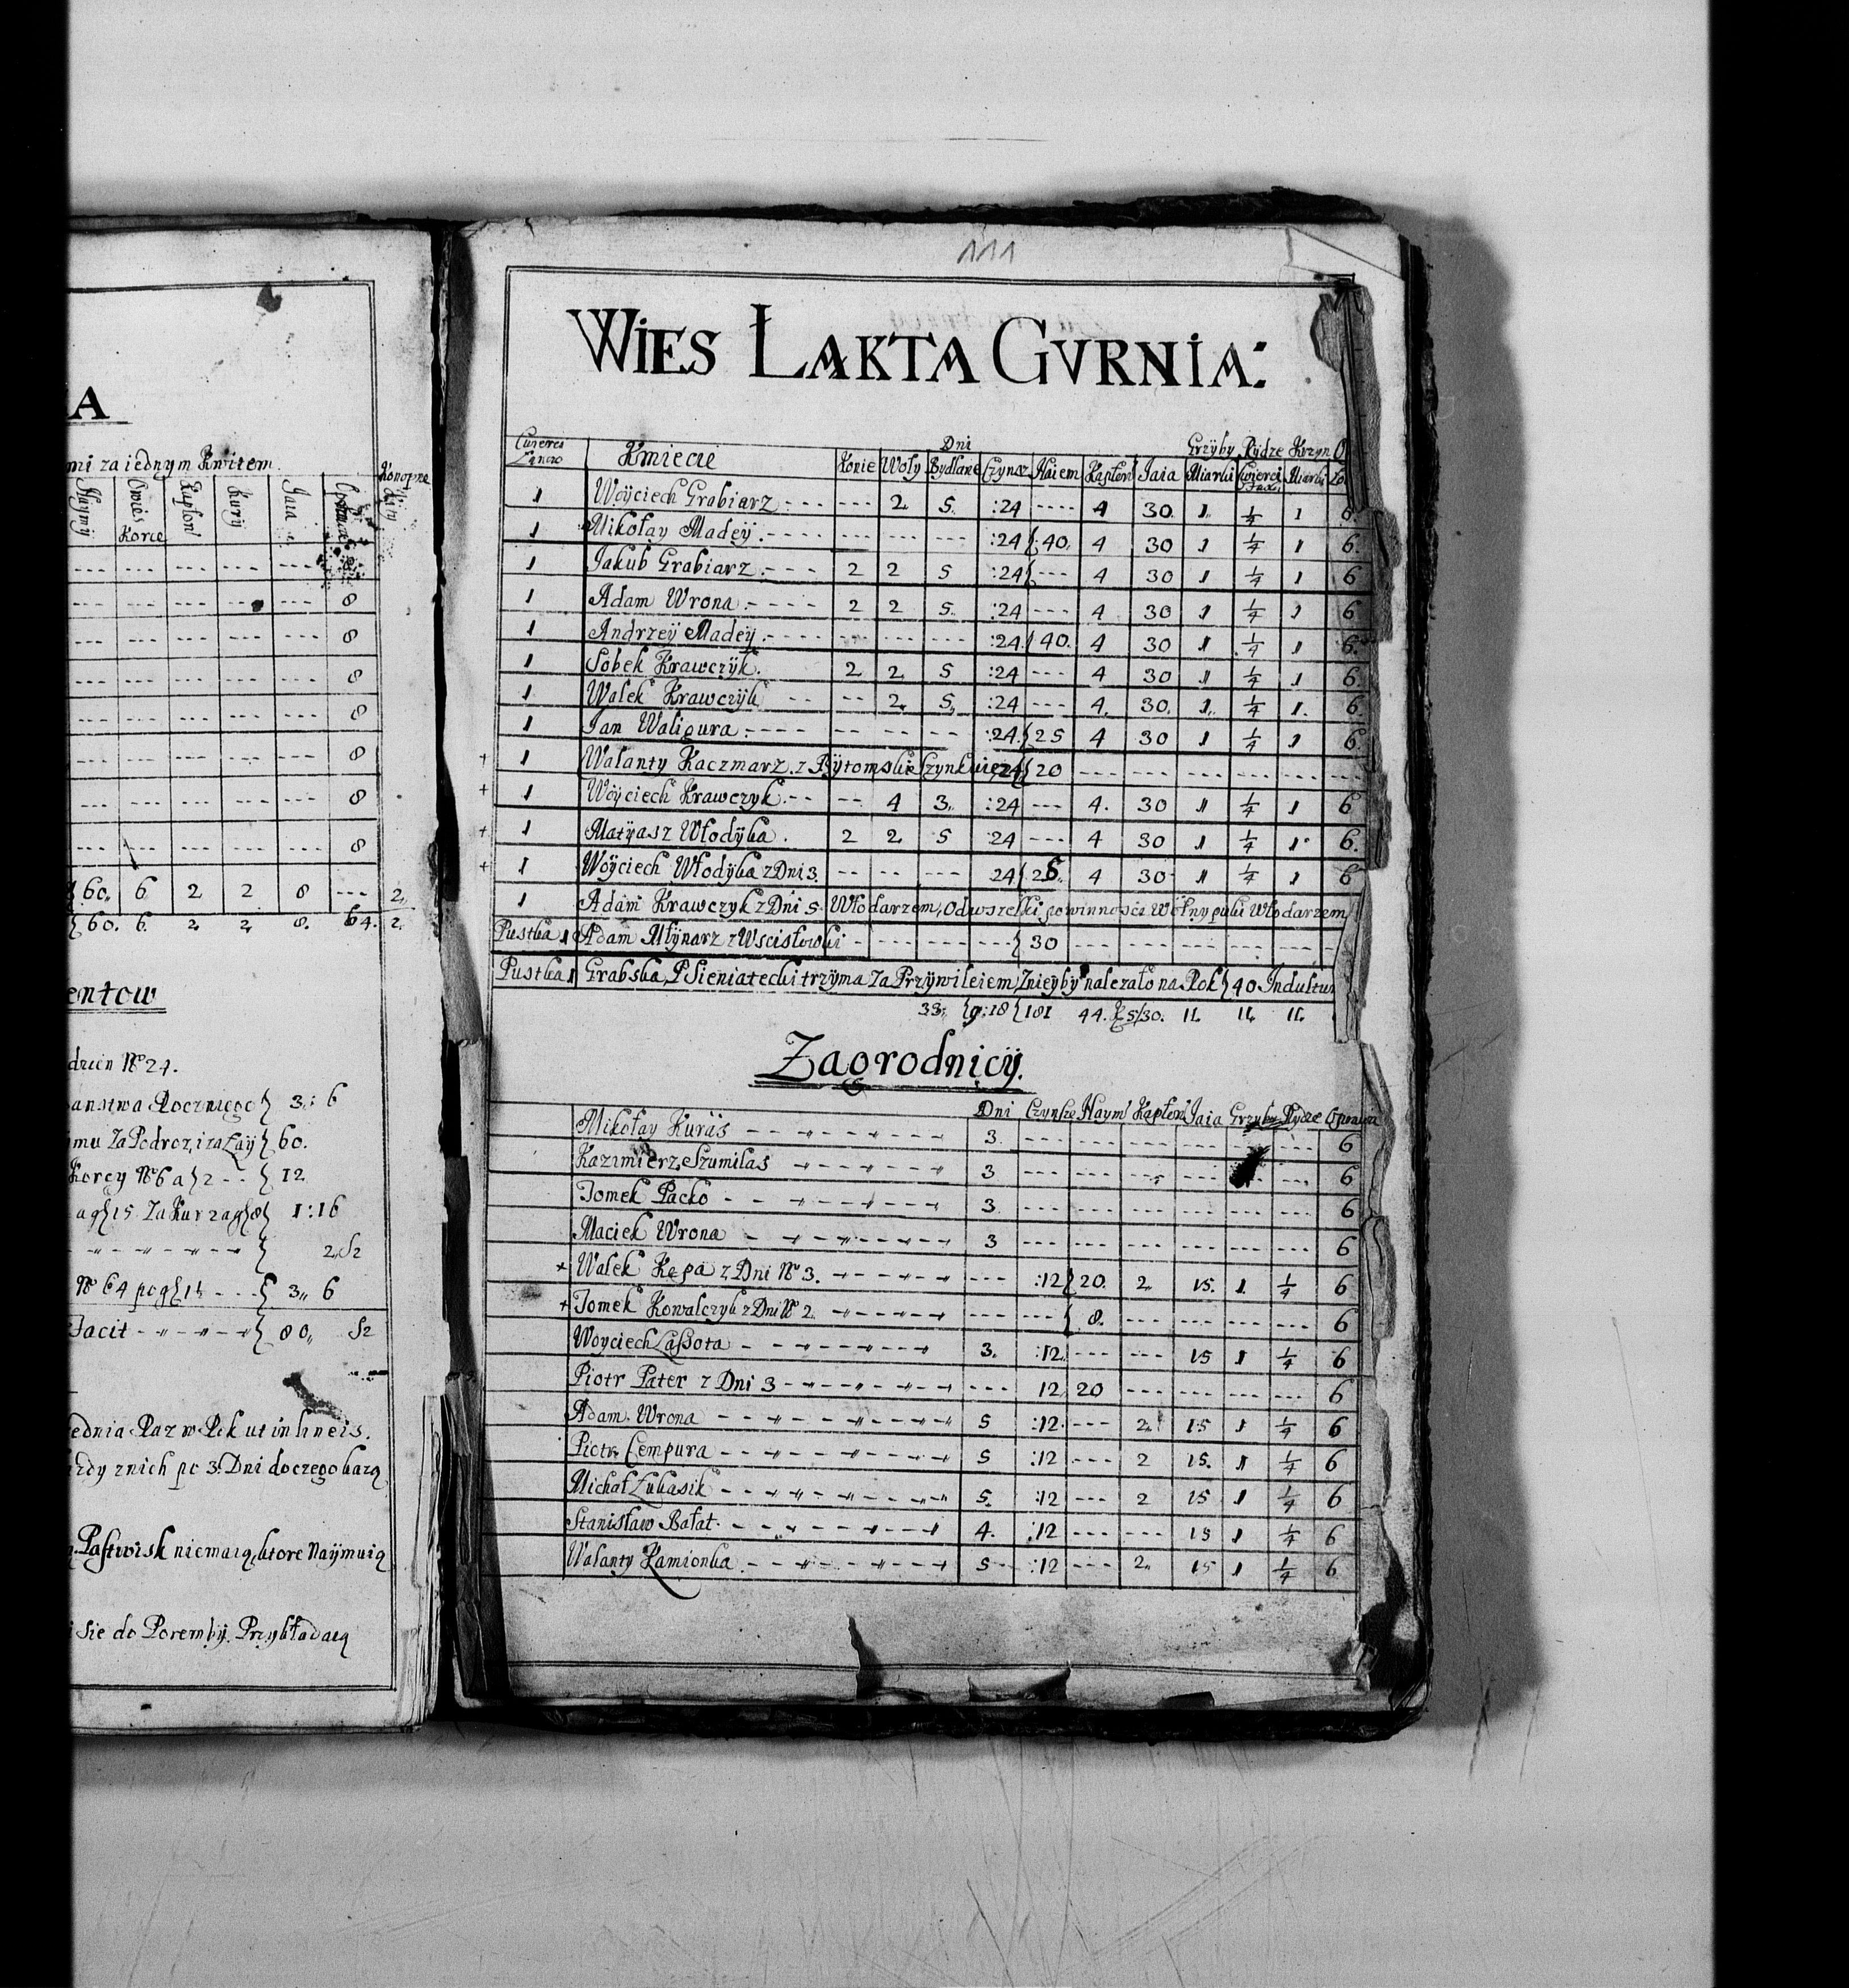 A
mi za iednym Kwitem
Konopne
Haymij Owies Korce Kapłoni Kurij Iaia
--- --- --- --- ---
--- --- --- --- --- 8
--- --- --- --- --- 8
--- --- --- --- --- 8
--- --- --- --- --- 8
--- --- --- --- --- 8
--- --- --- --- --- 8
--- --- --- --- --- 8
60. 6 2 2 8 --- 2.
60. 6. 2. 2 8. 64. 2.
entow
dzien No 24.
anstwa Roczniego 3.: 6
mu Za Podroz, i za
60.
Korcy No 6 a 2 -- 12
15 Za Kur 1:16
2.
No 64 3„ 6
Facit 80„
ednia Raz w Rok ut in lineis.
znich po 3. Dni do czego
Pastwisk niemaią, ktore Naÿmuią
sie do Poremby. Przykładaią
111
WIES ŁAKTA GVRNIA:
Kmiecie
Dni
Grzyby Rydze Krzyn
Konie Woły Bydlane Czynsz Haiem Kapłoni Iaia Miarki Cwierci Miarki
1 Woÿciech Grabiarz ---- --- 2. 5. :24 ---- 4 30. 1. 1/4 1 6.
1 Mikołay Madeÿ. ---- --- --- --- :24 :40. 4 30 1 1/4 1 6.
1 Jakub Grabiarz. --- 2 2 5 :24 --- 4 30 1 1/4 1 6
1 Adam Wrona. ---- 2 2 5. :24 --- 4 30 1 1/4 1 6
1 Andrzeÿ Madeÿ. ---- --- --- --- :24. 40. 4 30 1 1/4 1 6.
1 Sobek Krawczÿk. 2 2. 5 :24 --- 4 30 1 1/4 1 6.
1 Walek Krawczÿk -- -- 2. 5. :24 --- 4. 30. 1. 1/4 1. 6.
1 Jan Waligura. ---- -- -- -- :24. 25 4 30 1 1/4 1 6.
+ 1 Walanty Kaczmarz. z Bÿtomskie 24 20 --- --- --- --- --- ---
+ 1 Woÿciech Krawczyk. -- -- 4 3. :24 --- 4. 30 1 1/4 1 6
+ 1 Matÿasz Włodÿka. 2 2. 5 24 --- 4 30 1 1/4 1. 6.
+ 1 Woÿciech Włodÿka z Dni 3. -- -- --- 24 26. 4 30 1 1/4 1 6
1 Adam Krawczyk z Dni 5. Włodarzem, Od wszelki powinnosci Wolny puki Włodarzem
Pustka 1 Adam Młÿnarz z Wscisłowki - --- --- --- 30 --- --- --- --- ---
Pustka 1 Grabska, P Sieniatecki trzÿma Za Przÿwileiem Znieÿ by nalezało na Rok 40
33. 9.:18 181 44. 5/30. 11. 11. 11.
Zagrodnicÿ.
Dni Czynsze Haym Kapłoni Iaia Grzyby Rydze Oprawa
Mikołay Kuras 3. --- --- --- --- --- --- 6
Kazimierz Szumilas 3 --- --- --- --- --- 6
Tomek Packo 3. --- --- --- --- --- --- 6
Maciek Wrona 3 --- --- --- --- --- --- 6
+ Walek Kępa z Dni No 3. --- :12 20. 2. 15. 1. 1/4 6
+ Tomek Kowalczyk z Dni No 2. --- --- 8. --- --- --- --- 6
Woyciech Lassota 3. :12. --- --- 15 1 1/4 6
Piotr Pater z Dni 3 --- 12 20 --- --- --- --- 6
Adam Wrona 5 :12. --- 2. 15 1 1/4 6
Piotr Cempura 5 :12 --- 2 15. 1 1/4 6
Michał Łukasik 5. :12 --- 2 15 1 1/4 6
Stanisław Bałat. 4. :12 --- --- 15 1 1/4 6
Walanty Kamionka. 5 :12 --- 2. 15 1 1/4 6